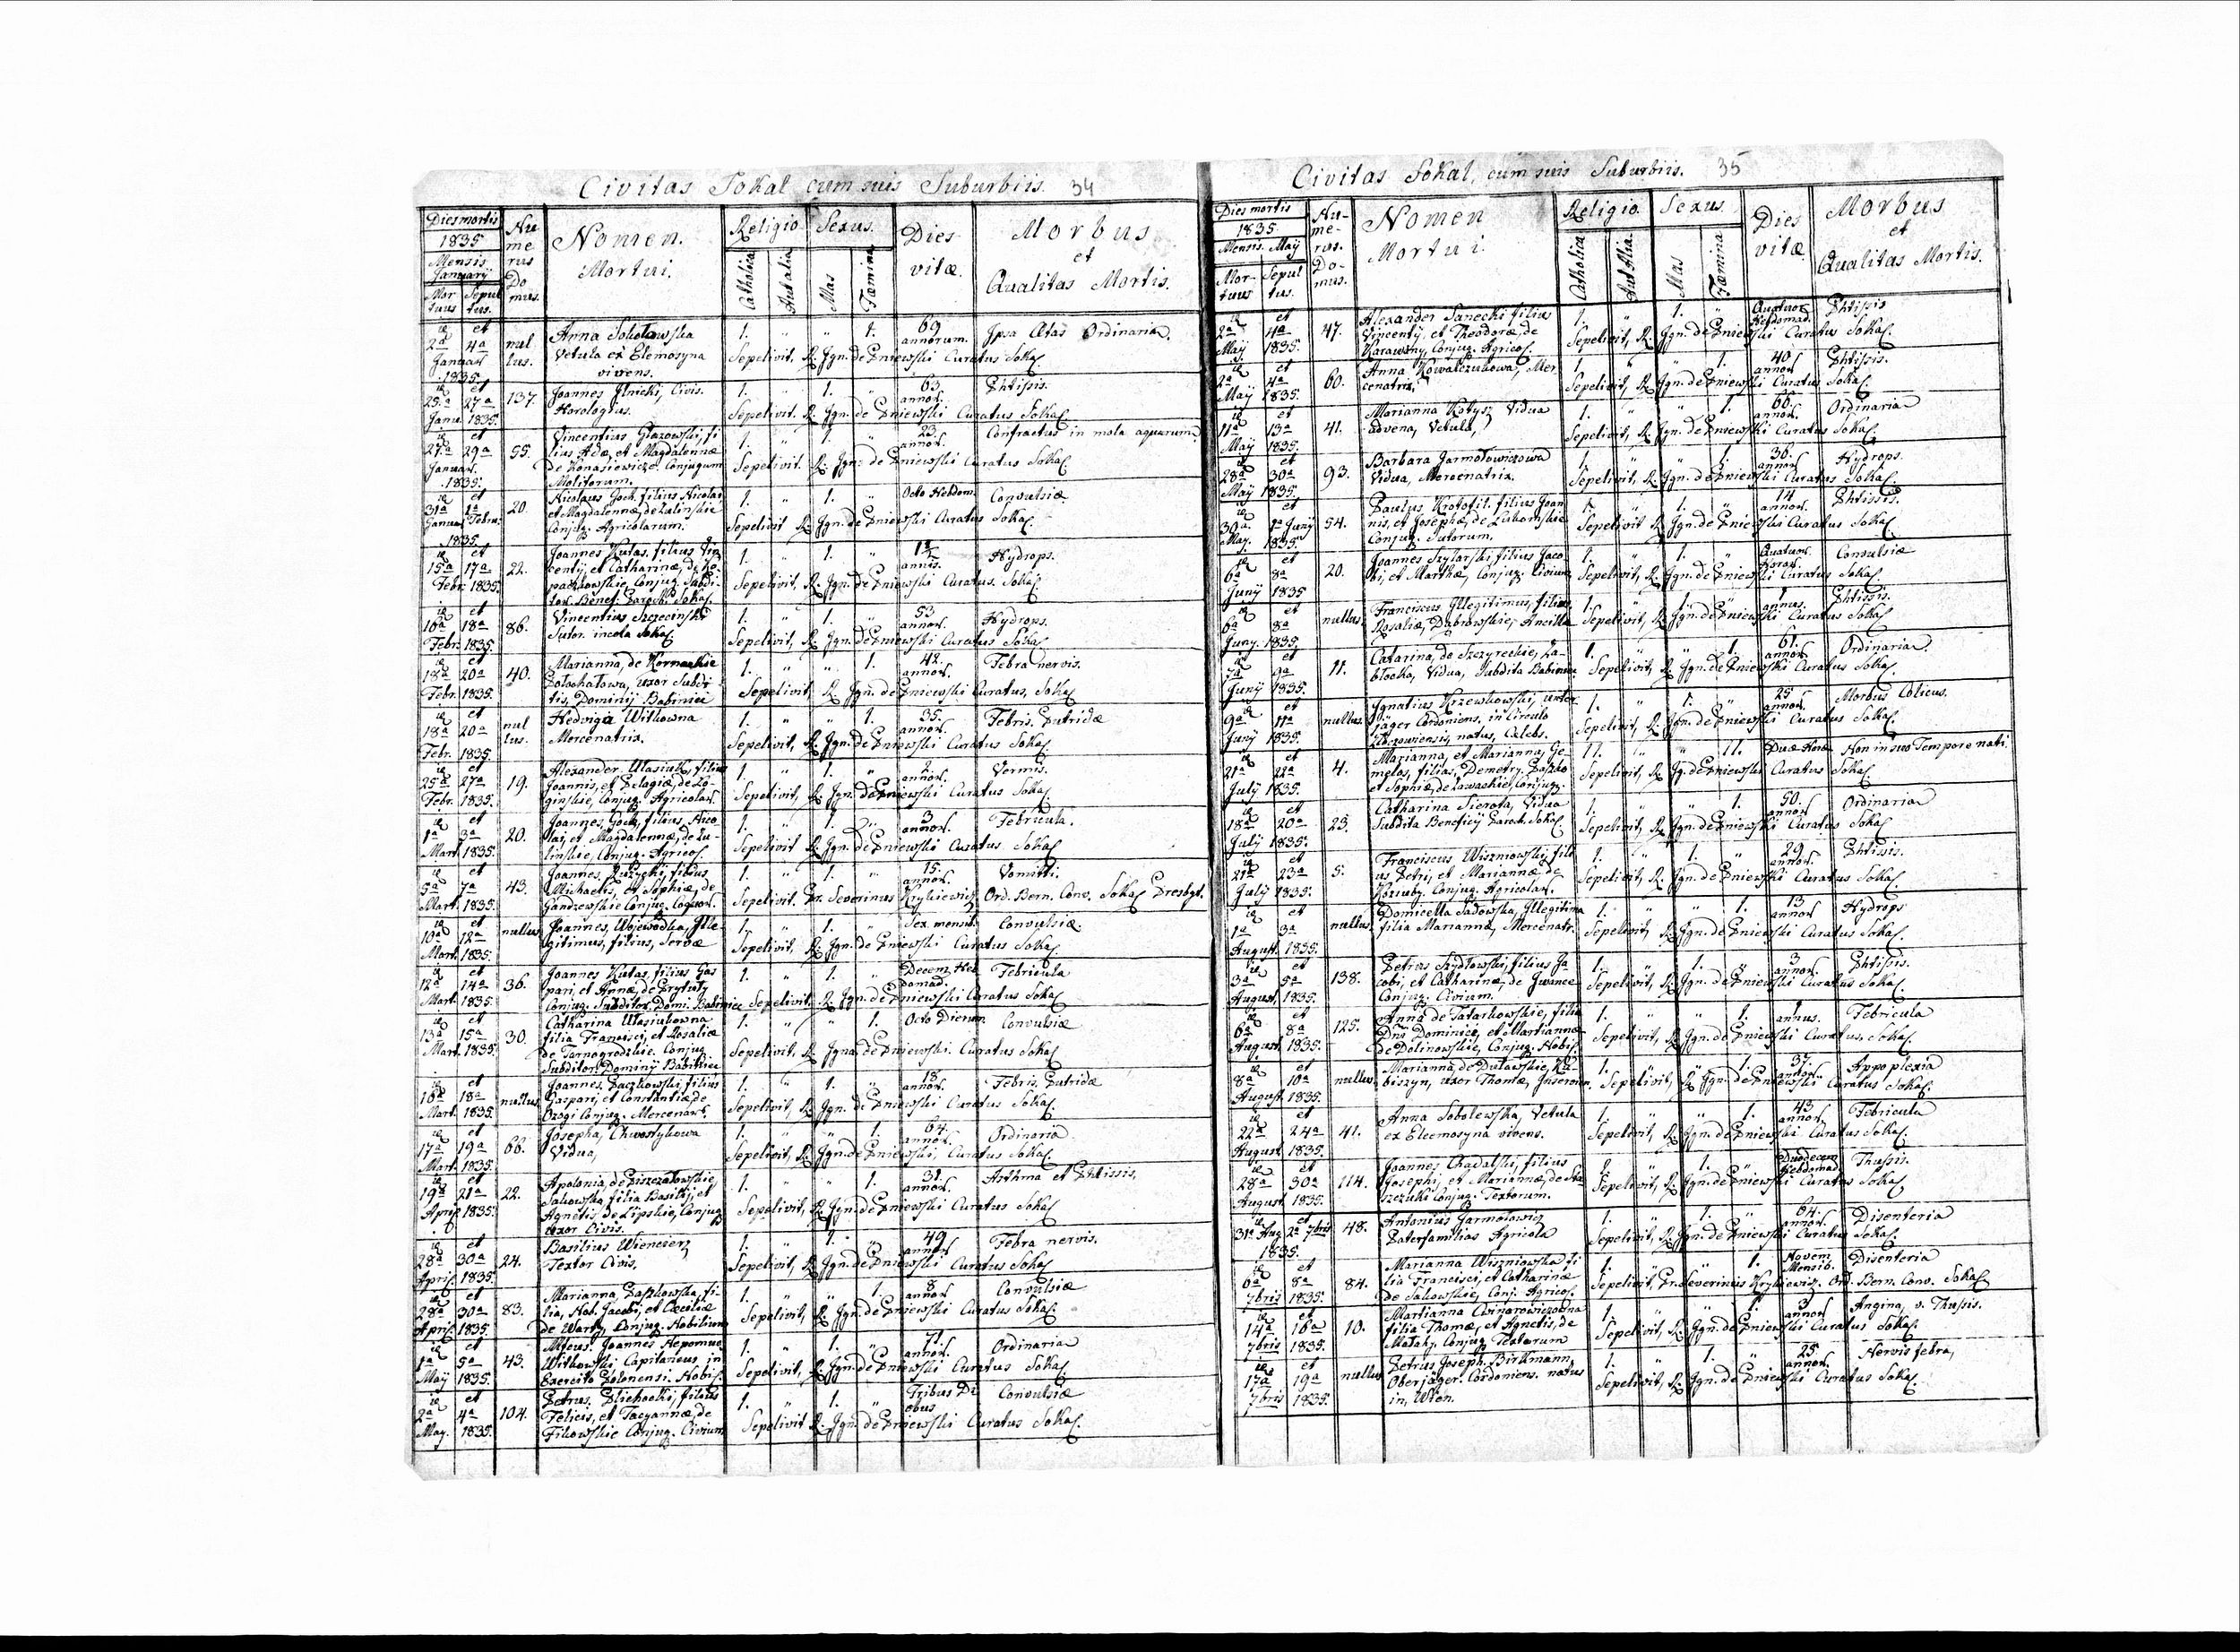 Civitas Sokal cum suis Suburbiis. 34
Dies mortis
1835
Mensis
January
Mor
tuus
Sepul
tus.
Nu
me
rus
Do
mus.
Nomen.
Mortui.
Religio
Catholica
Aut alia
Sexus.
Mas
Fæmina
Dies
vitæ.
Morbus
et
Qualitas Mortis.
2a et 4a
Januar.
1835.
nul
lus.
Anna Sokołowska
Vetula ex Elemosyna
vivens.
1. " " 1.
69
annorum.
Ipsa Ætas Ordinaria.
Sepelivit, R. Ign. de Pniewski Curatus Sokal.
25a et 27a
Janu. 1835.
137.
Joannes Ilnicki, Civis.
Horologius.
1. " 1. "
63.
annor.
Phtisis.
Sepelivit. R. Ign. de Pniewski Curatus Sokal
27a et 29a
Januar.
1835.
55.
Vincentius Głazowski, fi
lius Adæ, et Magdalennæ
de Konasiewicze Conjugum
Molitorum.
1. " 1. "
23.
annor.
Confractus in mola aquarum.
Sepelivit. R. Ign. de Pniewski Curatus Sokal
31a et 1a
Januar. Febru.
1835.
20
Nicolaus Gock, filius Nicolai
et Magdalennæ, de Zalinskie
Conjug. Agricolarum.
1. " 1. "
Octo Hebdom.
Convulsiæ
Sepelivit R. Ign. de Pniewski Curatus Sokal
15a et 17a
Febr. 1835.
22.
Joannes Kutas, filius Vin
centy, et Catharinæ, de
Conjug. Subdi
tor. Benef. Paroch. Sokal.
1. " 1. "
annis.
Hydrops.
Sepelivit, R. Ign. de Pniewski Curatus. Sokal.
16a et 18a
Febr. 1835.
86.
Vincentius Szczecinski
Sutor. incola Sokal
1. " 1. "
53
annor.
Hydrops.
Sepelivit, R. Ign. de Pniewski Curatus Sokal
18a et 20a
Febr. 1835.
40.
Marianna, de Kornackie
uxor Subdi
tis, Dominij Babiniec
1. " " 1.
42.
annor.
Febra nervis.
Sepelivit, R. Ign. de Pniewski Curatus, Sokal
18a et 20a
Febr. 1835.
nul
lus.
Hedvigia Witkowna
Mercenatrix.
1. " " 1.
35.
annor.
Febris. Putridæ
Sepelivit, R. Ign. de Pniewski Curatus Sokal
25a et 27a
Febr. 1835.
19.
Alexander Ułasiuk, filius
Joannis, et Pelagiæ, de Lo-
ginskie, Conjug. Agricolar.
1. " 1. "
2.
annor.
Vermis.
Sepelivit, R. Ign. de Pniewski Curatus Sokal
1a et 3a
Mart. 1835.
20.
Joannes, Gock, filius, Nico
lai, et Magdalennæ, de Za-
linskie, Conjug. Agricol.
1. " 1. "
3
annor.
Febricula.
Sepelivit R. Ign. de Pniewski Curatus Sokal
5a et 7a
Mart. 1835.
43.
Joannes, Ruzycki, filius
Michaelis, et Sophiæ, de
Gandzewskie Conjug. Coquor.
1. " 1. "
15.
annor.
Vomitti.
Sepelivit. Pr. Severinus Krykiewicz Ord. Bern. Conv. Sokal Presbyt.
10a et 12a
Mart. 1835.
nullus
Joannes, Wojewodka, Ille
gitimus, filius, Serbæ
1. " 1. "
Sex mensib.
Convulsiæ.
Sepelivit. R. Ign. de Pniewski Curatus Sokal
12a et 14a
Mart. 1835.
36.
Joannes Kutas, filius Gas
pari, et Annæ, de Prytuły
Conjug. Subditor. Domi. Babiniec
1. " 1. "
Decem Heb
domad.
Febricula
Sepelivit, R. Ign. de Pniewski Curatus Sokal
13a et 15a
Mart. 1835.
30.
Catharina Ułasiukowna
filia Francisci, et Rosaliæ
de Tarnogrodzkie. Conjug
Subditor. Dominij Babiniec
1. " " 1.
Octo Dierum
Convulsiæ
Sepelivit, R. Igna. de Pniewski. Curatus Sokal
16a et 18a
Mart. 1835.
nullus
Joannes, Paczkowski, filius
Gaspari, et Constantiæ, de
Conjug. Mercenar.
1. " 1. "
18.
annor.
Febris. Putridæ
Sepelivit, R. Ign. de Pniewski Curatus Sokal.
17a et 19a
Mart. 1835.
66.
Josepha, Chwostykowa
Vidua,
1. " " 1.
64.
annor.
Ordinaria
Sepelivit, R. Ign. de Pniewski, Curatus Sokal
19a et 21a
April 1835.
22.
Apolonia, de Piszczatowskie,
Sakowska, filia Basilij, et
Agnetis de Lipskie, Conjug
uxor Civis.
1. " " 1.
31.
annor.
Asthma et Phtissis.
Sepelivit, R. Ign. de Pniewski Curatus Sokal
28a et 30a
April. 1835.
24.
Basilius Wieneierz
Textor Civis.
1. " 1. "
49
annor
Febra nervis.
Sepelivit, R. Ign. de Pniewski Curatus Sokal
28a et 30a
April. 1835.
83.
Marianna, Paszkowska, fi-
lia, Nob. Jacobi, et Cæciliæ
de Warty, Conjug. Nobilium
1. " " 1.
8
annor
Convulsiæ
Sepelivit, R. Ign. de Pniewski Curatus Sokal.
1a et 5a
May 1835.
43.
Joannes Nepomuc
Witkowski Capitaneus in
Exercito Polonensi. Nobil.
1. " 1. "
71.
annor.
Ordinaria
Sepelivit, R. Ign. de Pniewski Curatus Sokal
2a et 4a
May. 1835.
104.
Petrus. Pliehocki, filius
Felicis, et Tacyannæ, de
Fikowskie Conjug. Civium
1. " 1. "
Tribus Di
ebus
Convulsiæ
Sepelivit R. Ign. de Pniewski Curatus Sokal.
Civitas Sokal, cum suis Suburbiis. 35
Dies mortis
1835
Mensis. May
Mor-
tuus
Sepul
tus.
Nu-
me-
rus.
Do-
mus.
Nomen
Mortui.
Religio.
Catholica
Aut Alia.
Sexus
Mas
Fæmina
Dies
vitæ
Morbus
et
Qualitas Mortis.
2a et 4a
May 1835.
47.
Alexander Sanecki filius
Vincenty, et Theodoræ, de
Karawany, Conjug. Agricol.
1. " 1. "
Quatuor
Hebdomad.
Phtisis
Sepelivit, R. Ign. de Pniewski Curatus Sokal.
2a et 4a
May 1835.
60.
Anna Kowalczukowa, Mer
cenatrix,
1. " " 1.
40.
annor
Phtissis.
Sepelivit, R. Ign. de Pniewski Curatus Sokal.
11a et 13a
May 1835.
41.
Marianna Kotysz Vidua
advena, Vetula,
1. " " 1.
66.
annor.
Ordinaria
Sepelivit, R. Ign. de Pniewski Curatus Sokal.
28a et 30a
May 1835.
93.
Barbara Jarmołowiczowa
Vidua, Mercenatrix.
1. " " 1.
36.
annor
Hydrops.
Sepelivit, R. Ign. de Pniewski Curatus Sokal.
30a et 1a Juny
May. 1835.
54.
Paulus Krotofil. filius Joan
nis, et Josephæ, de Liskowskie
Conjug. Sutorum.
1. " 1. "
14
annor.
Phtissis.
Sepelivit R. Ign. de Pniewski Curatus Sokal
6a et 8a
Juny 1835
20.
Joannes Szylarski, filius Jaco
bi, et Marthæ, Conjug. Civium
1. " 1. "
Quatuor.
Horar.
Convulsiæ
Sepelivit, R. Ign. de Pniewski Curatus Sokal.
6a et 8a
Juny. 1835.
nullus.
Franciscus Illegitimus, filius
Rosaliæ, Dąbrowskiej, Ancilla
1. " 1. "
1
annus.
Phtissis.
Sepelivit, R. Ign. de Pniewski Curatus Sokal
7a et 9a
Juny 1835.
11.
Catarina, de Szczyreckie, Za-
błocka, Vidua, Subdita Babiniec
1. " " 1.
61.
annor
Ordinaria.
Sepelivit, R. Ign. de Pniewski Curatus Sokal
9a et 11a
Juny 1835.
nullus.
Ignatius Krzewkowski, unter
jäger Cordoniens. in Circulo
natus, Celebs.
1. " 1. "
25
annor.
Morbus Colicus.
Sepelivit, R. Ign. de Pniewski Curatus Sokal
21a et 22a
July 1835.
4.
Marianna, et Marianna, Ge
melos, filias, Demetry. Paszko
et Sophiæ, de Zawackie, Conjug.
11. " " 11.
Duæ Horæ
Non in suo Tempore nati.
Sepelivit, R. Ig. de Pniewski Curatus Sokal
18a et 20a
July 1835.
23.
Catharina Sierota, Vidua
Subdita Beneficij Paroch. Sokal
1. " " 1.
50.
annor
Ordinaria
Sepelivit, R. Ign. de Pniewski Curatus Sokal
21a et 23a
July 1835.
5.
Franciscus Wiszniowski, fili
us Petri, et Mariannæ, de
Koziuby, Conjug. Agricolar.
1. " 1. "
29.
annor.
Phtissis.
Sepelivit, R. Ign. de Pniewski Curatus Sokal.
1a et 3a
August. 1835.
nullus
Domicella Sadowska, Illegitima
filia Mariannæ, Mercenatr.
1. " " 1.
13
annor
Hydrops
Sepelivit, R. Ign. de Pniewski Curatus Sokal.
3a et 5a
August. 1835.
138.
Petrus Szydłowski, filius Ja
cobi, et Catharinæ, de Iwance
Conjug. Civium.
1. " 1. "
3
annor.
Phtisis.
Sepelivit, R. Ign. de Pniewski Curatus Sokal.
6a et 8a
August. 1835.
125.
Anna de Tatarkowskie, filia
Dni Dominici, et Martiannæ
de Dolinowskie, Conjug. Nobil.
1. " " 1.
1
annus.
Febricula
Sepelivit, R. Ign. de Pniewski Curatus, Sokal.
8a et 10a
August. 1835.
nullus.
Marianna, de Dutawskie, Ku
biszyn, uxor Thomæ,
1. " " 1.
37.
annor.
Appoplexia
Sepelivit, R. Ign. de Pniewski Curatus Sokal.
22a et 24a
August. 1835.
41.
Anna Sobolewska, Vetula
ex Eleemosyna vivens.
1. " " 1.
43
annor.
Febricula
Sepelivit, R. Ign. de Pniewski Curatus Sokal.
28a et 30a
August. 1835.
114.
Joannes Chadalski, filius
Josephi, et Mariannæ, de Sta
szczuki Conjug. Textorum.
1. " 1. "
Duodecem
Hebdomad.
Thussis.
Sepelivit, R. Ign. de Pniewski Curatus Sokal
31a Aug. et 2a 7bris
1835.
48.
Antonius Jarmołowicz
Paterfamilias Agricola
1. " 1. "
64.
annor.
Disenteria
Sepelivit, R. Ign. de Pniewski Curatus Sokal.
6a et 8a
7bris 1835.
84.
Marianna Wiszniowska fi
lia Francisci, et Catharinæ
de Sakowskie, Conj. Agricol.
1. " " 1.
Novem
Mensib.
Disenteria
Sepelivit, Pr. Severinus Krykiewicz Ord. Bern. Conv. Sokal
14a et 16a
7bris 1835.
10.
Martianna Cwinarowiczowna
filia Thomæ, et Agnetis, de
Matały, Conjug. Textorum
1. " " 1.
annor
Angina, v. Thussis.
Sepelivit, R. Ign. de Pniewski Curatus Sokal.
17a et 19a
7bris 1835.
nullus
Petrus Joseph. Birkmann,
Oberjäger. Cordoniens. natus
in, Wien.
1. " 1. "
25.
annor.
Nervis febra,
Sepelivit, R. Ign. de Pniewski Curatus Sokal.